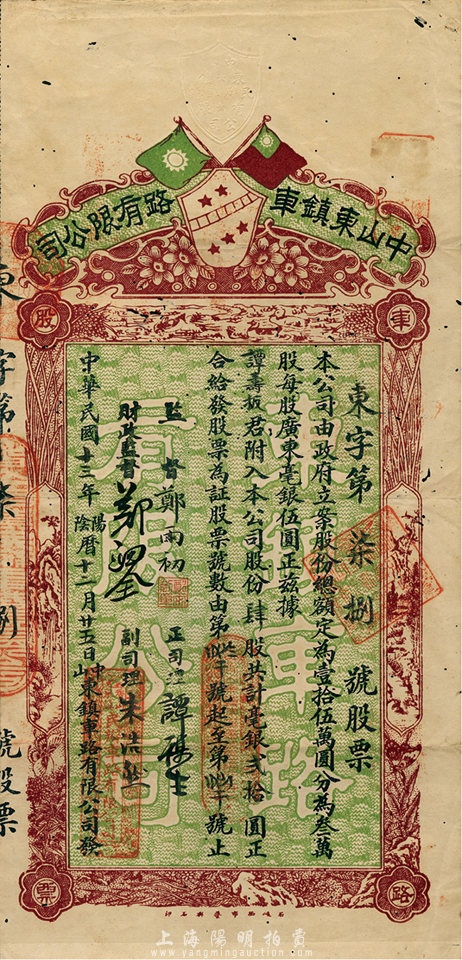 中山東鎮車路有限公司
車
股
路
票
東字第 柒捌 號股票
本公司由政府立案股份總額定為壹拾伍萬圓分為叁萬
股每股廣東毫銀伍圓正茲據
譚壽板君附入本公司股份肆股共計毫銀貳拾圓正
合給發股票為証股票號數由第 號起至第 號止
監督 鄭雨初
財政監督 鄭
正司理 譚
副司理 朱
中華民國十三年陽陰曆十二月廿五日中山東鎮車路有限公司發
東字第 柒捌 號股票
上海陽明拍賣
www.yangmingauction.com